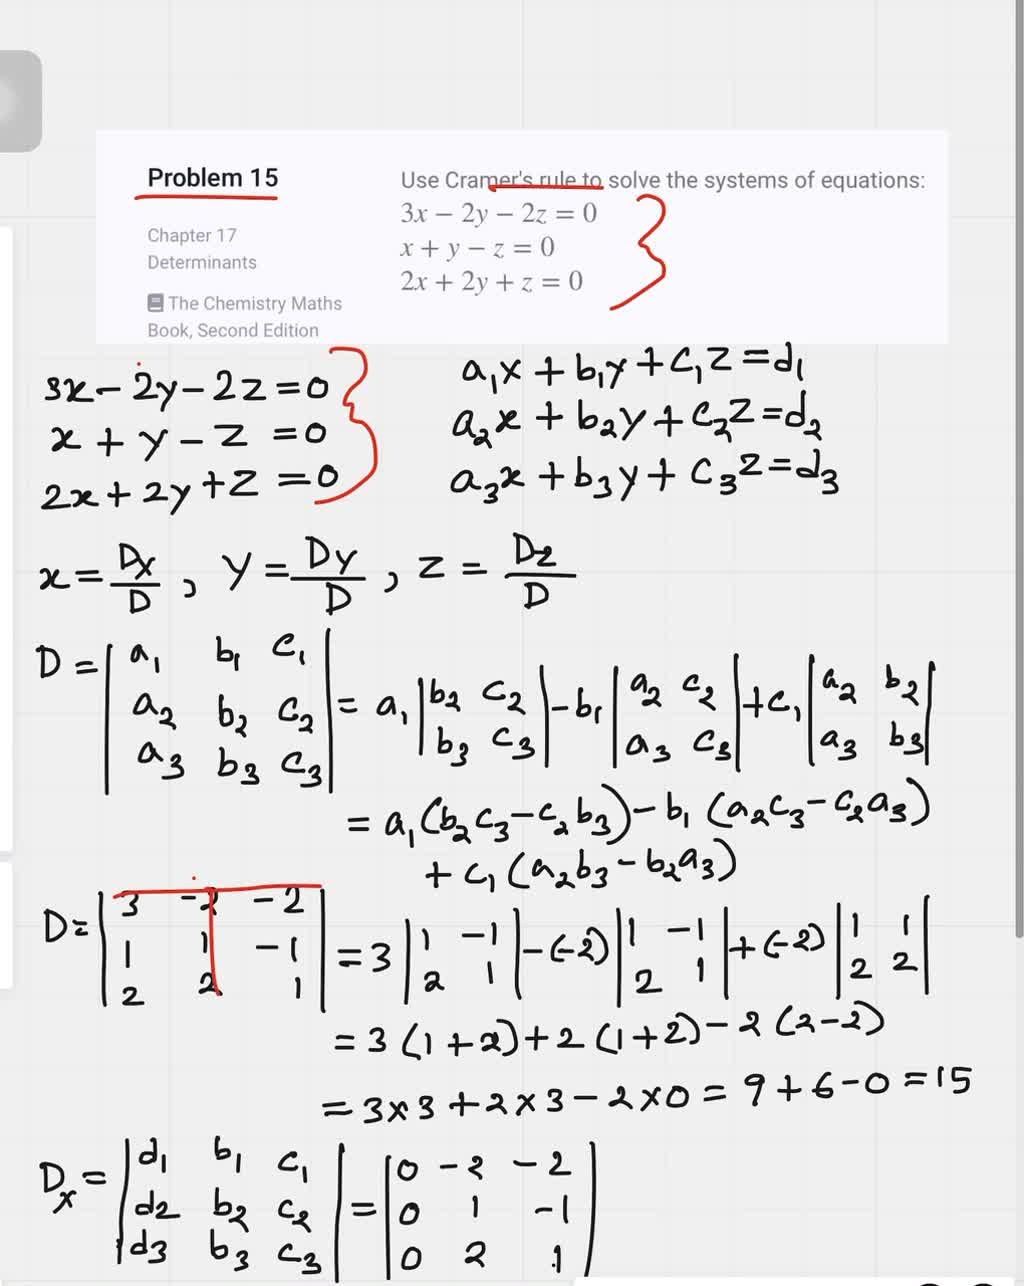 Problem 15
Chapter 17
Determinants
The Chemistry Maths
Book, Second Edition
Use Cramer's rule to solve the systems of equations:
3x − 2y − 2z = 0
x + y − z = 0
2x + 2y + z = 0
3x − 2y − 2z = 0
x + y − z = 0
2x + 2y + z = 0
a₁x + b₁y + c₁z = d₁
a₂x + b₂y + c₂z = d₂
a₃x + b₃y + c₃z = d₃
x = Dx/D , y = Dy/D , z = Dz/D
D = |a₁ b₁ c₁; a₂ b₂ c₂; a₃ b₃ c₃| = a₁ |b₂ c₂; b₃ c₃| − b₁ |a₂ c₂; a₃ c₃| + c₁ |a₂ b₂; a₃ b₃|
= a₁(b₂c₃ − c₂b₃) − b₁(a₂c₃ − c₂a₃)
+ c₁(a₂b₃ − b₂a₃)
D = |3 −2 −2; 1 1 −1; 2 2 1| = 3 |1 −1; 2 1| − (−2) |1 −1; 2 1| + (−2) |1 1; 2 2|
= 3(1+2) + 2(1+2) − 2(2−2)
= 3×3 + 2×3 − 2×0 = 9 + 6 − 0 = 15
Dx = |d₁ b₁ c₁; d₂ b₂ c₂; d₃ b₃ c₃| = |0 −2 −2; 0 1 −1; 0 2 1|